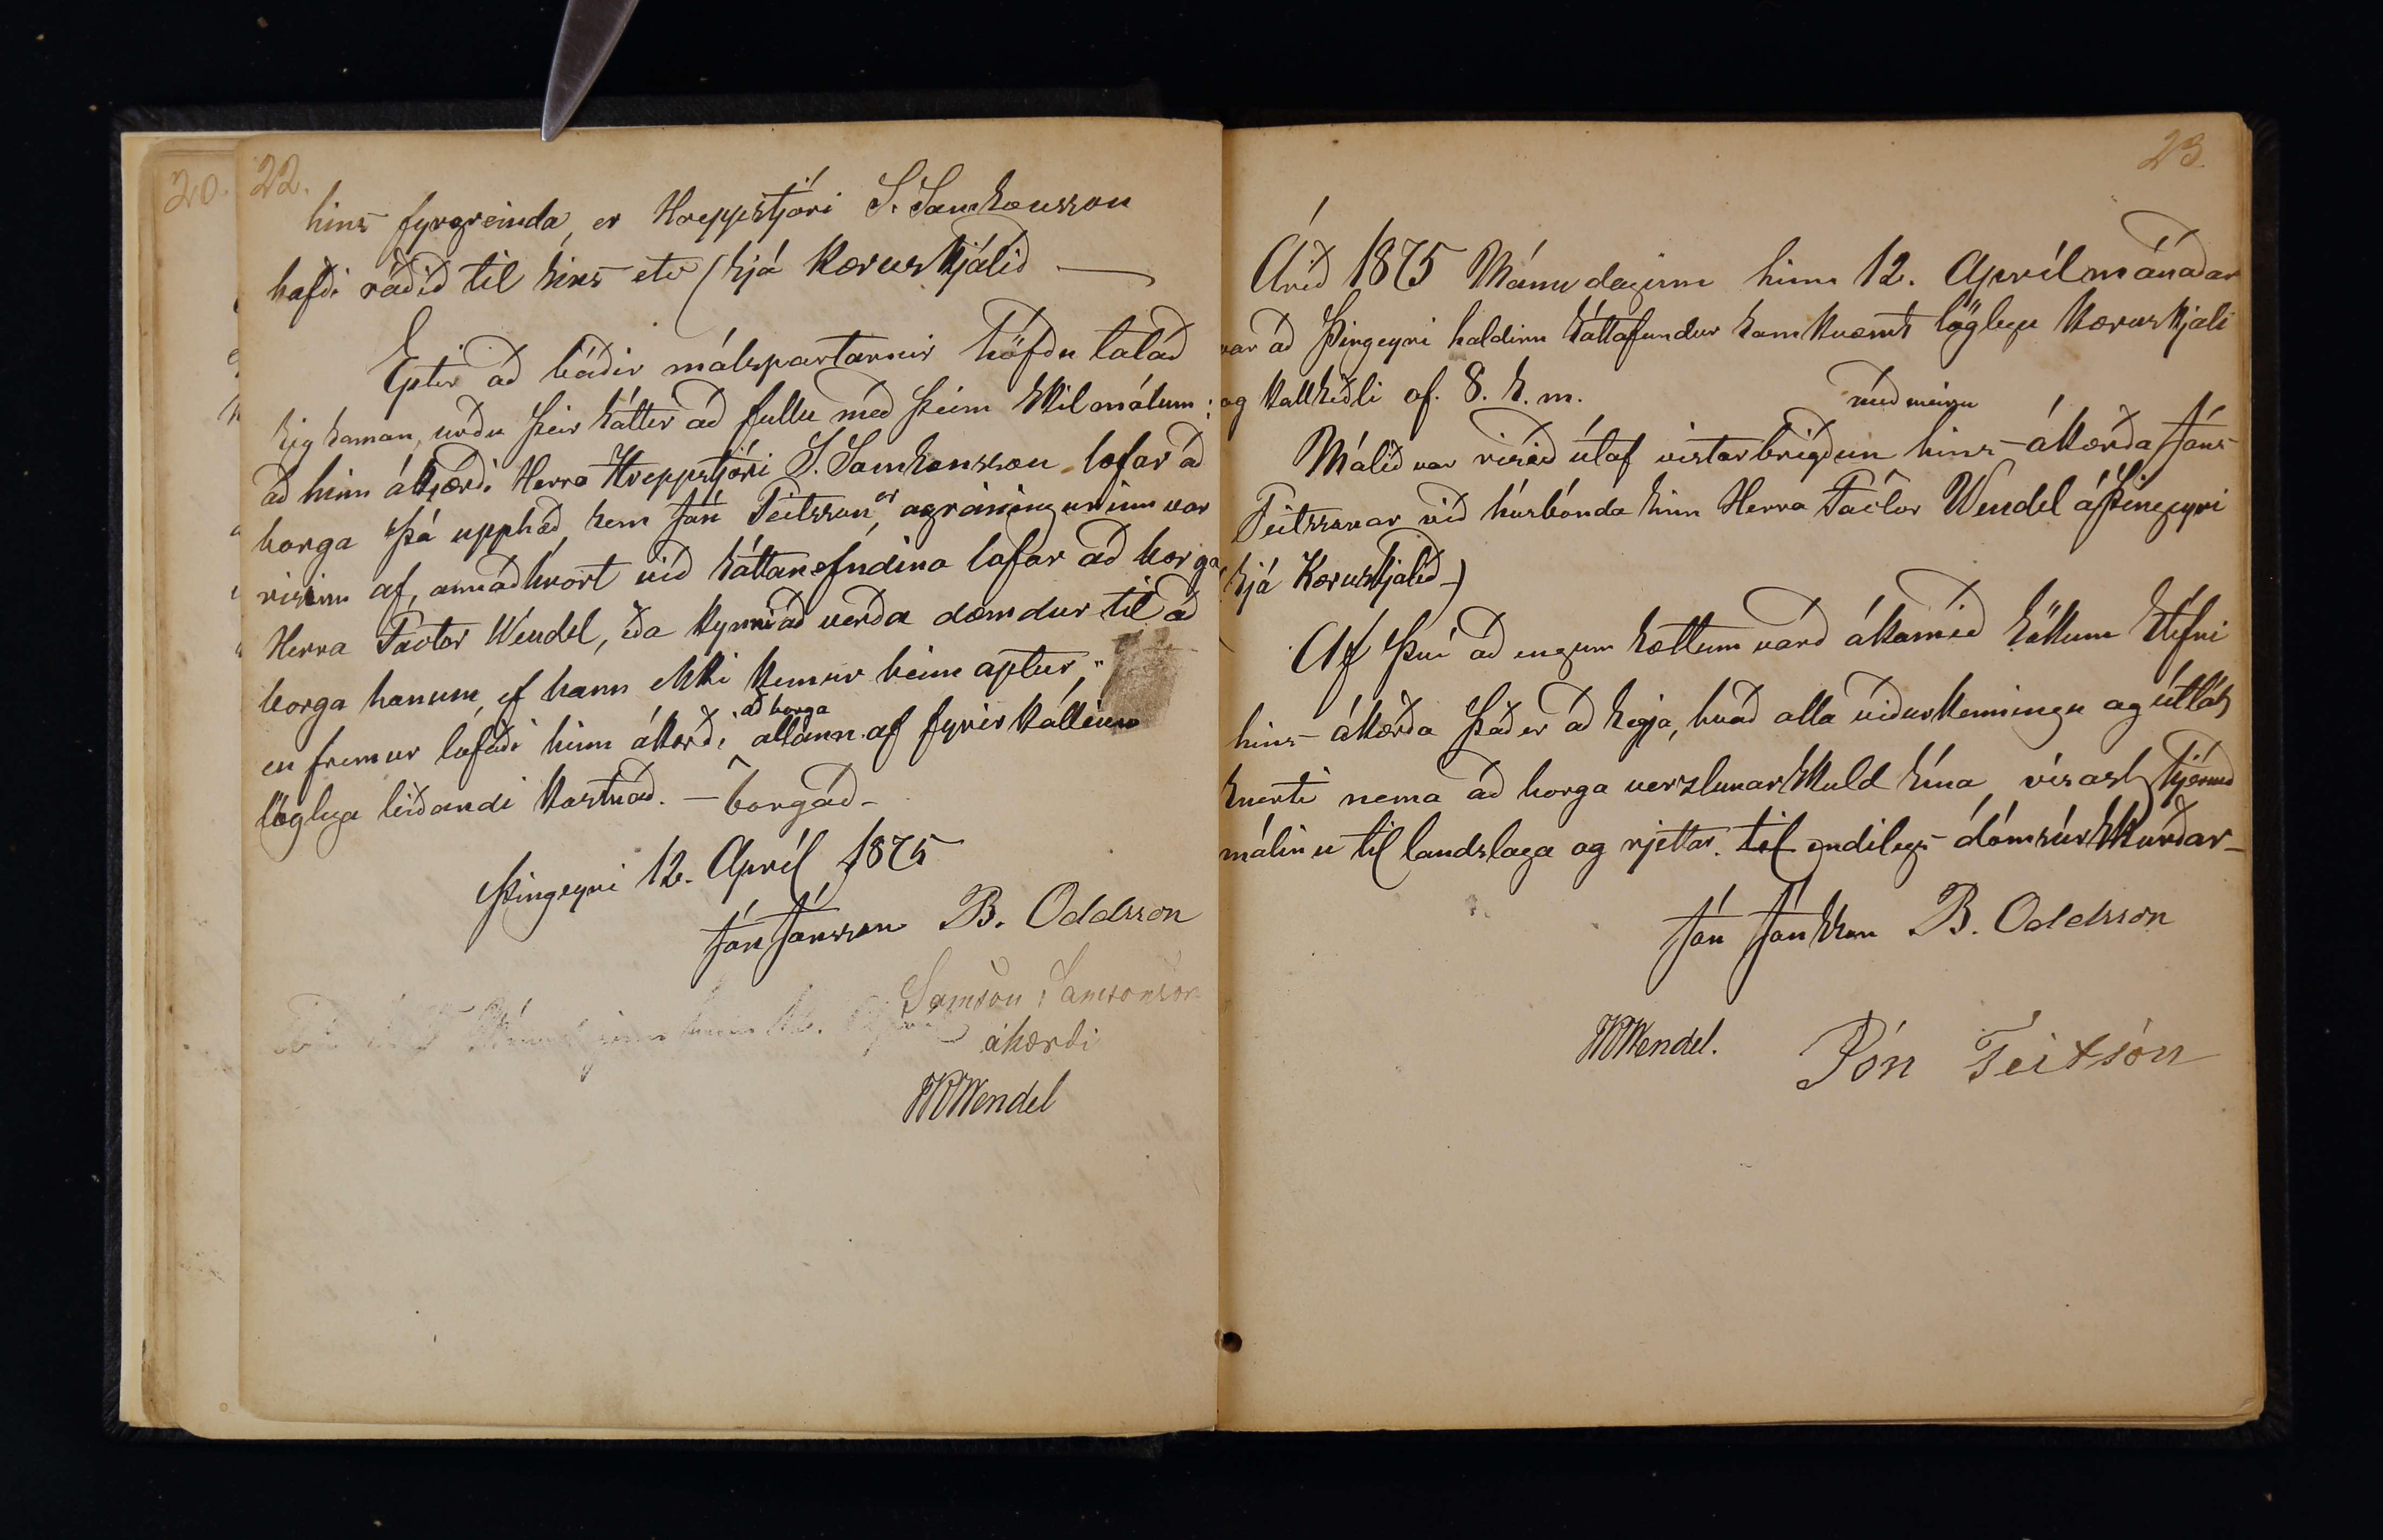 20. 22.
hins fyrgreinda, er Hreppstjóri S. Samsonsson
hafði ráðið til sins etc (sjá Kæruskjalið —
Eptir að báðir málspartarnir höfðu talað
sig saman, urðu þeir sáttir að fullu með þeim skilmálum:
að hinn ákjærði Herra Hreppstjóri S. Samsonsson lofar að
borga þá upphæð, sem Jón Teitsson, er agreiningurinn var
risinn af, annaðhvört við sáttanefndina lofar að borga
Herra Factor Wendel, eða kynni að verða dæmdur til að
borga honum, ef hann ekki kemur heim aptur,"
en fremur lofaði hinn ákærði að borga allann af fyrirkallinu
löglega leiðandi kostnað. — borgað —
Þingeyri 12. Apríl 1875
Jón Jónsson B. Oddsson
Samson Samsonson
ákærði
WWendel
23.
Árið 1875 Mánudaginn hinn 12. Aprílmánaðar
var að Þingeyri haldinn sáttafundur samkvæmt löglegu kæruskjali
og kallseðli af. 8. s. m.
með meiru
Málið var risið útaf vistarbrigðum hins ákærða Jóns
Teitssonar við húsbónda sinn Herra Factor Wendel á Þingeyri
(sjá Kæruskjalið —)
Af því að engum sættum varð ákomið sökum stífni
hins ákærða það er að segja, hvað alla viðurkenningu og útlát
snerti nema að borga verzlunarskuld sína, vísast hjermeð
málinu til landslaga og rjettar til endilegs dómsúrskurðar —
Jón Jónsson B. Oddsson
WWendel. Jón Teitsón